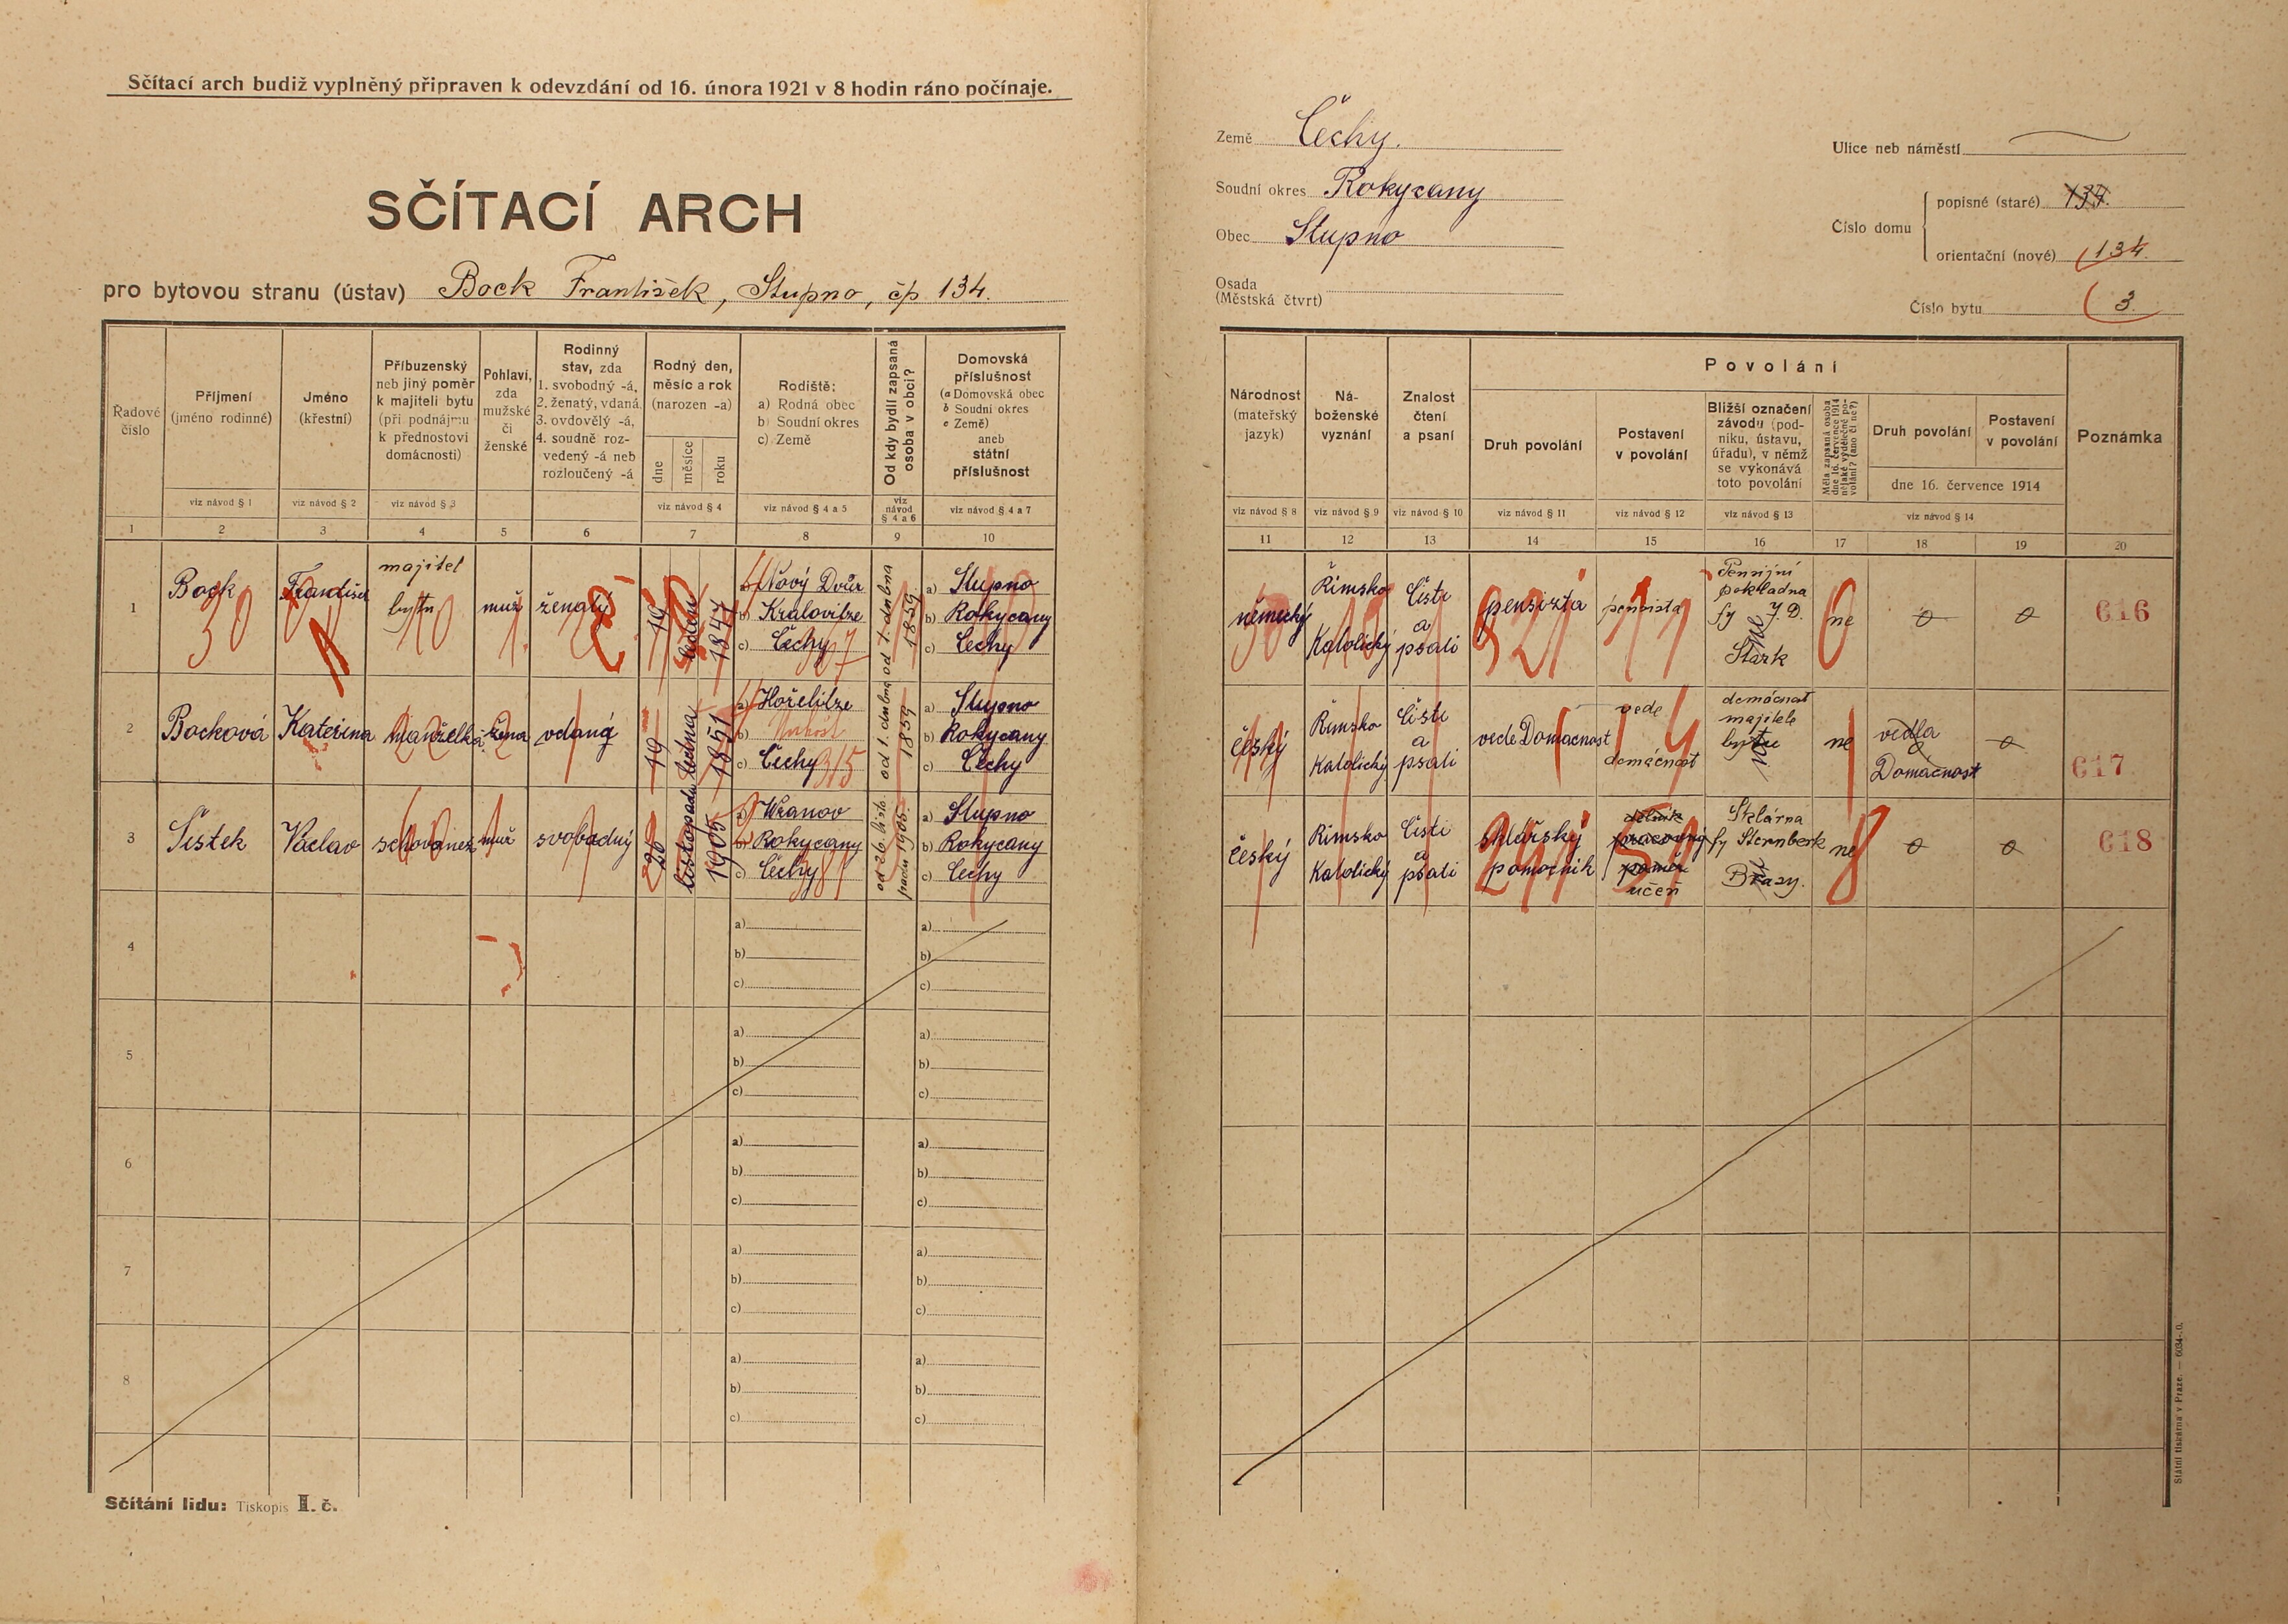 Sčítací arch budiž vyplněný připraven k odevzdání od 16. února 1921 v 8 hodin ráno počínaje.
SČÍTACÍ ARCH
pro bytovou stranu (ústav) Bock František, Stupno, čp 134.
Země Čechy.
Soudní okres Rokycany
Obec Stupno
Osada
(Městská čtvrt)
Ulice neb náměstí
Číslo domu
popisné (staré) 134.
orientační (nové) 134.
Číslo bytu 3.
Řadové číslo
Příjmení
(jméno rodinné)
viz návod § 1
Jméno
(křestní)
viz návod § 2
Příbuzenský
neb jiný poměr
k majiteli bytu
(při podnájmu
k přednostovi
domácnosti)
viz návod § 3
Pohlaví,
zda
mužské
či
ženské
Rodinný
stav, zda
1. svobodný -á,
2. ženatý, vdaná,
3. ovdovělý -á,
4. soudně roz-
vedený -á neb
rozloučený -á
Rodný den,
měsíc a rok
(narozen -a)
dne
měsíce
roku
viz návod § 4
Rodiště:
a) Rodná obec
b) Soudní okres
c) Země)
viz návod § 4 a 5
Od kdy bydlí zapsaná
osoba v obci?
viz
návod
§ 4 a 6
Domovská
příslušnost
(a Domovská obec
b Soudní okres
c Země)
aneb
státní
příslušnost
viz návod § 4 a 7
1 2 3 4 5 6 7 8 9 10
Národnost
(mateřský
jazyk)
viz návod § 8
Ná-
boženské
vyznání
viz návod § 9
Znalost
čtení
a psaní
viz návod § 10
Povolání
Druh povolání
viz návod § 11
Postavení
v povolání
viz návod § 12
Bližší označení
závodu (pod-
niku, ústavu,
úřadu), v němž
se vykonává
toto povolání
viz návod § 13
Měla zapsaná osoba
dne 16. července 1914
nějaké výdělečné po-
volání? (ano či ne?)
Druh povolání
Postavení
v povolání
dne 16. července 1914
viz návod § 14
Poznámka
11 12 13 14 15 16 17 18 19 20
1
Bock
František
majitel
bytu
muž
ženatý
19
leden
1847
a) Nový Dvůr
b) Kralovitze
c) Čechy
od 1. dubna
1859
a) Stupno
b) Rokycany
c) Čechy
německý
Římsko
Katolický
Čísti
a
psáti
pensista
pensista
Pensijní
pokladna
fy J. D.
Stark
ne
0
0
616
2
Bocková
Kateřina
manželka
žena
vdaná
19
ledna
1851
a) Hořelitze
b)
c) Čechy
od 1. dubna
1859
a) Stupno
b) Rokycany
c) Čechy
český
Římsko
Katolický
Čísti
a
psáti
vede Domacnost
vede
domácnost
domácnost
majitele
bytu
ne
vedla
Domácnost
0
617
3
Šístek
Václav
schovanec
muž
svobodný
25
listopadu
1905
a) Wranov
b) Rokycany
c) Čechy
od 26. listo-
padu 1905.
a) Stupno
b) Rokycany
c) Čechy
český
Římsko
Katolický
Čísti
a
psáti
sklářský
pomocník
dělník
pracovní
poměr
učeň
Sklárna
fy Sternberk
Brasy.
ne
0
0
618
4
a) a)
b) b)
c) c)
5
a) a)
b) b)
c) c)
6
a) a)
b) b)
c) c)
7
a) a)
b) b)
c) c)
8
a) a)
b) b)
c) c)
Sčítání lidu: Tiskopis I. č.
Státní tiskárna v Praze. — 6034-.0.